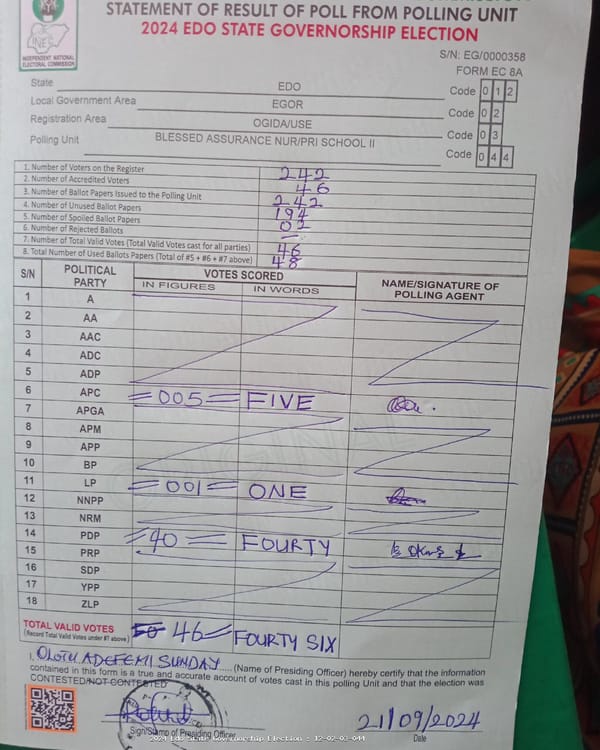 STATEMENT OF RESULT OF POLL FROM POLLING UNIT
2024 EDO STATE GOVERNORSHIP ELECTION
INEC
INDEPENDENT NATIONAL
ELECTORAL COMMISSION
S/N: EG/0000358
FORM EC 8A
State EDO Code 0 1 2
Local Government Area EGOR Code 0 2
Registration Area OGIDA/USE Code 0 3
Polling Unit BLESSED ASSURANCE NUR/PRI SCHOOL II Code 0 4 4
1. Number of Voters on the Register 242
2. Number of Accredited Voters 46
3. Number of Ballot Papers Issued to the Polling Unit 242
4. Number of Unused Ballot Papers 194
5. Number of Spoiled Ballot Papers 02
6. Number of Rejected Ballots –
7. Number of Total Valid Votes (Total Valid Votes cast for all parties) 46
8. Total Number of Used Ballots Papers (Total of #5 + #6 + #7 above) 48
S/N POLITICAL PARTY VOTES SCORED NAME/SIGNATURE OF POLLING AGENT
IN FIGURES IN WORDS
1 A
2 AA
3 AAC
4 ADC
5 ADP
6 APC =005= FIVE
7 APGA
8 APM
9 APP
10 BP
11 LP =001= ONE
12 NNPP
13 NRM
14 PDP =40= FOURTY
15 PRP
16 SDP
17 YPP
18 ZLP
TOTAL VALID VOTES 46= FOURTY SIX
(Record Total Valid Votes under #7 above)
I, OLOTU ADEFEMI SUNDAY (Name of Presiding Officer) hereby certify that the information
contained in this form is a true and accurate account of votes cast in this polling Unit and that the election was
CONTESTED/NOT CONTESTED
21/09/2024
Sign/Stamp of Presiding Officer Date
2024 Edo State Governorship Election : 12-02-03-044